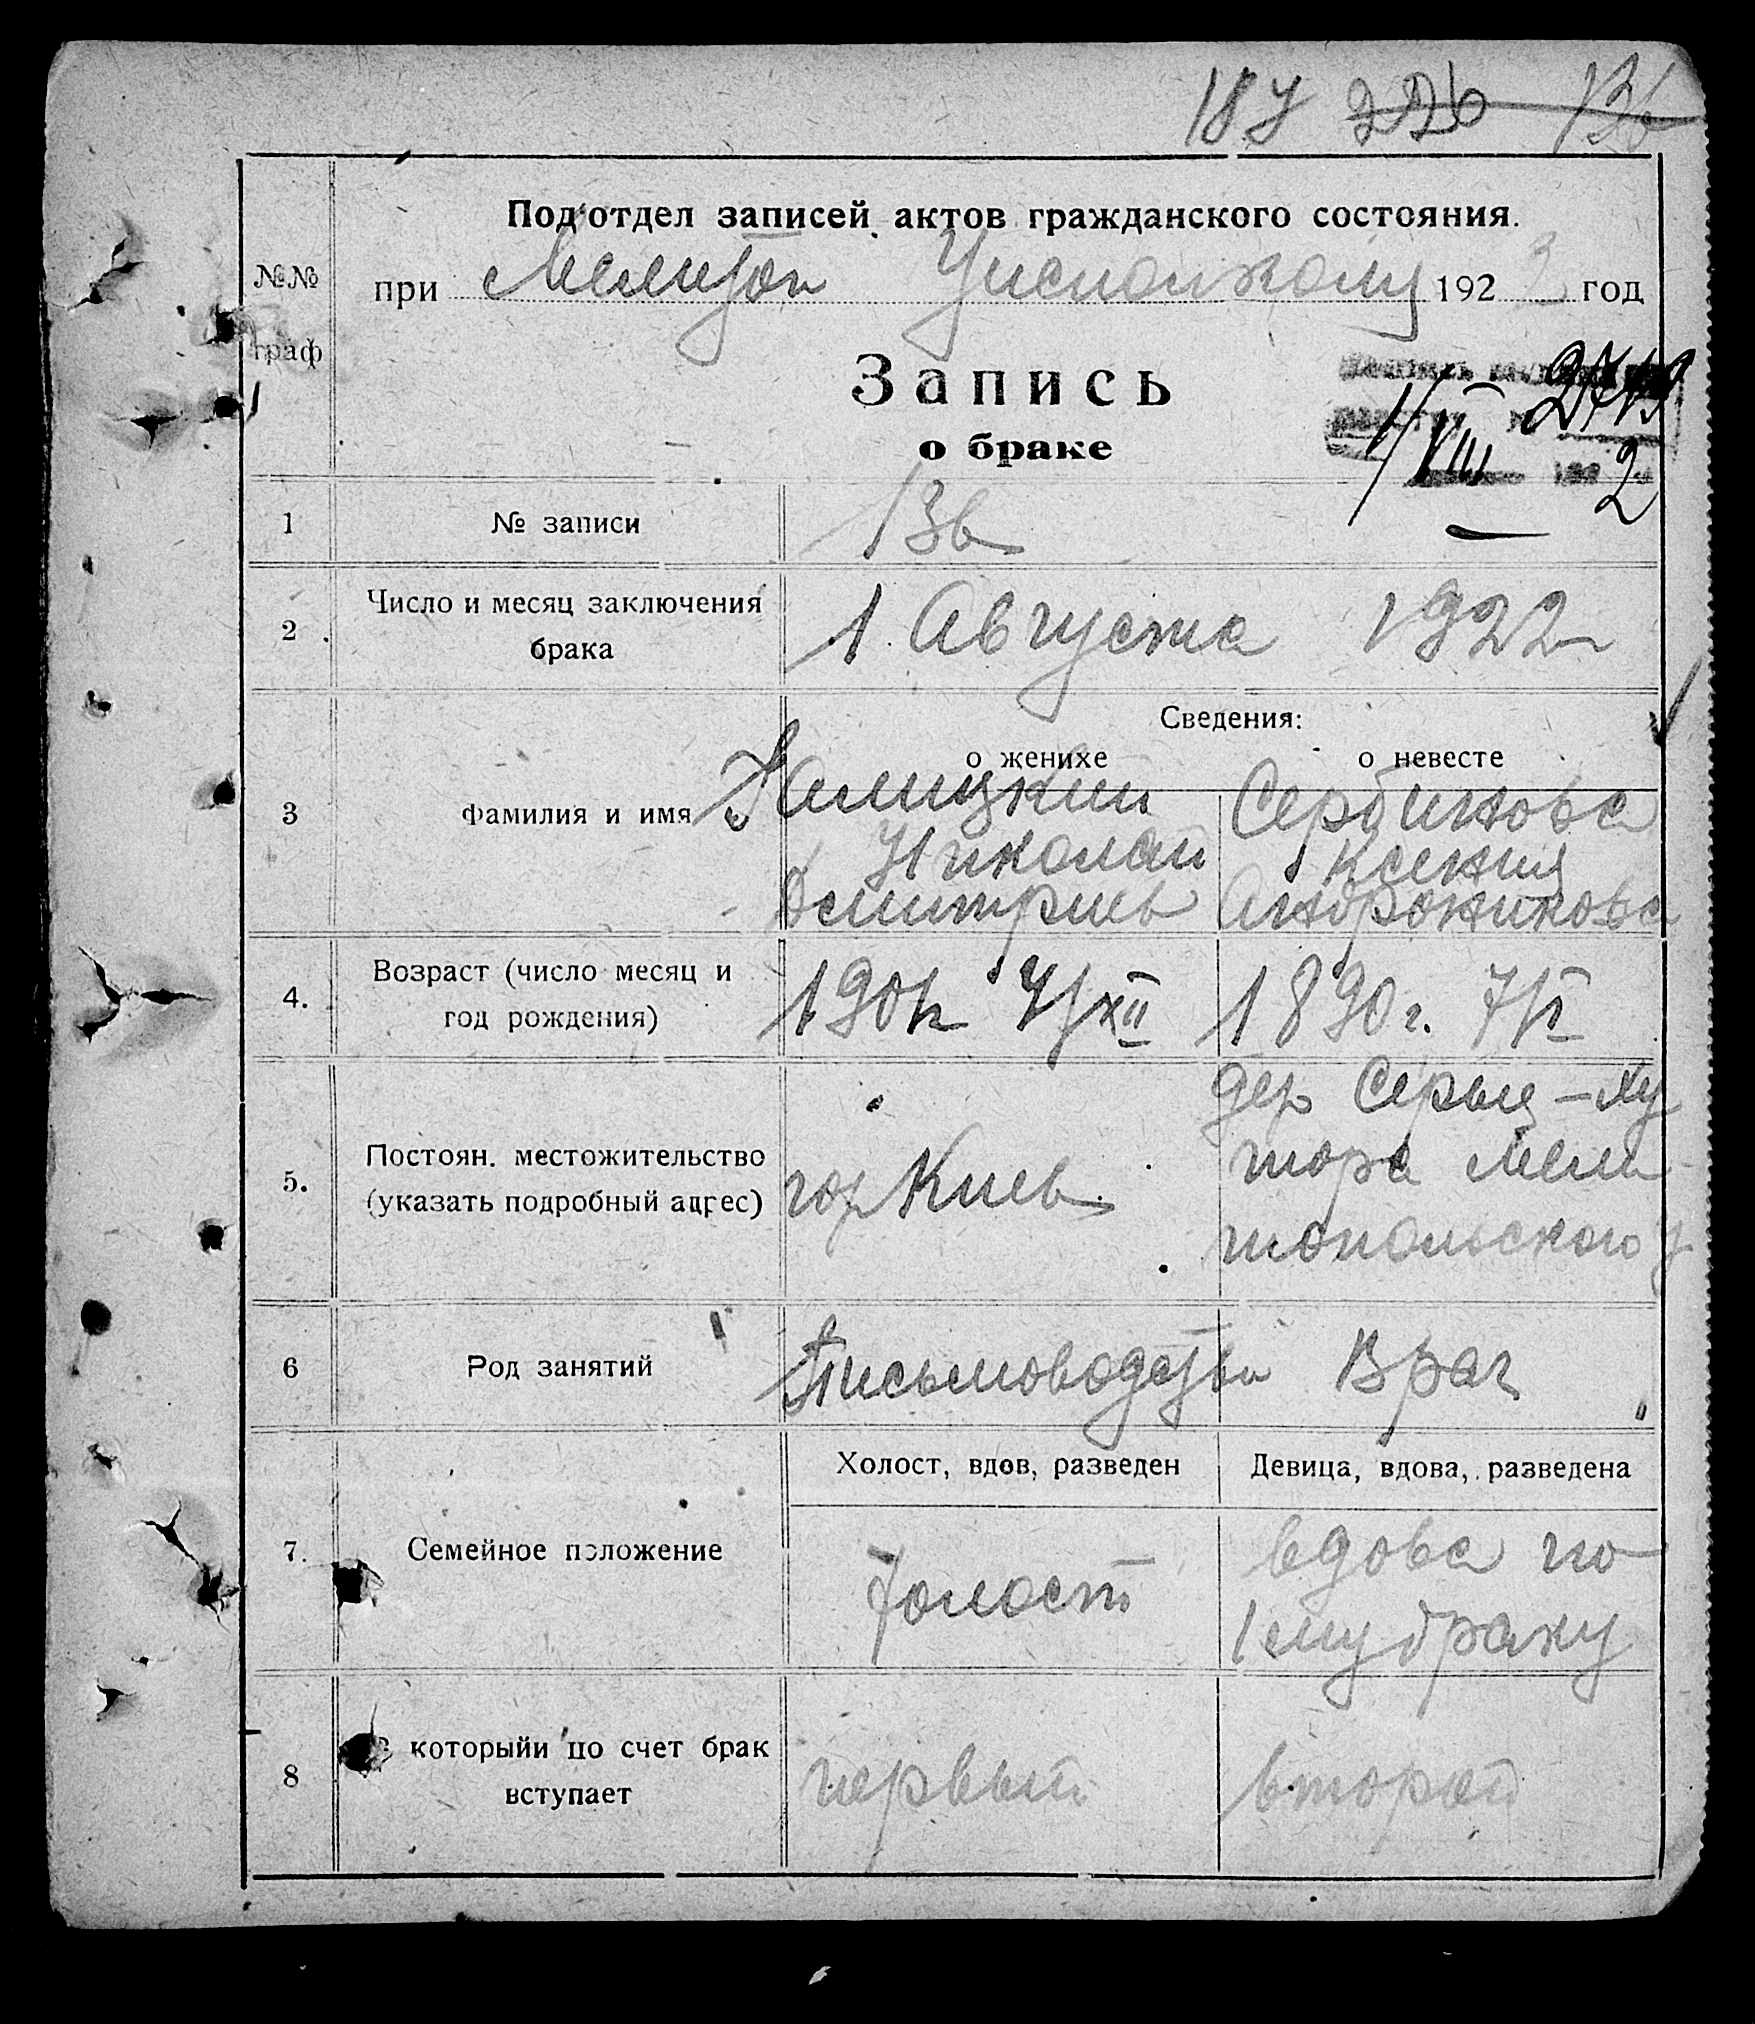 187 226 136
Подотдел записей актов гражданского состояния.
№№ граф
при Мелитоп Уисполкому 1922 год
Запись
о браке
1/VIII 2
1 № записи 136
2 Число и месяц заключения брака
1 Августа 1922
Сведения:
о женихе о невесте
3 Фамилия и имя
Калицкий Сербинова
Николай Ксения
Дмитриев Андроникова
4. Возраст (число месяц и
год рождения)
1901г 4/XII 1890г. 7/II
5. Постоян. местожительство
(указать подробный адрес)
гор Киев
дер Серыц-Ху
тора Мели
топольского у
6 Род занятий
Письмоводство Врач
Холост, вдов, разведен Девица, вдова, разведена
7. Семейное положение
Холост
вдова по
1ему браку
8 которыйи по счет брак
вступает
первый второй